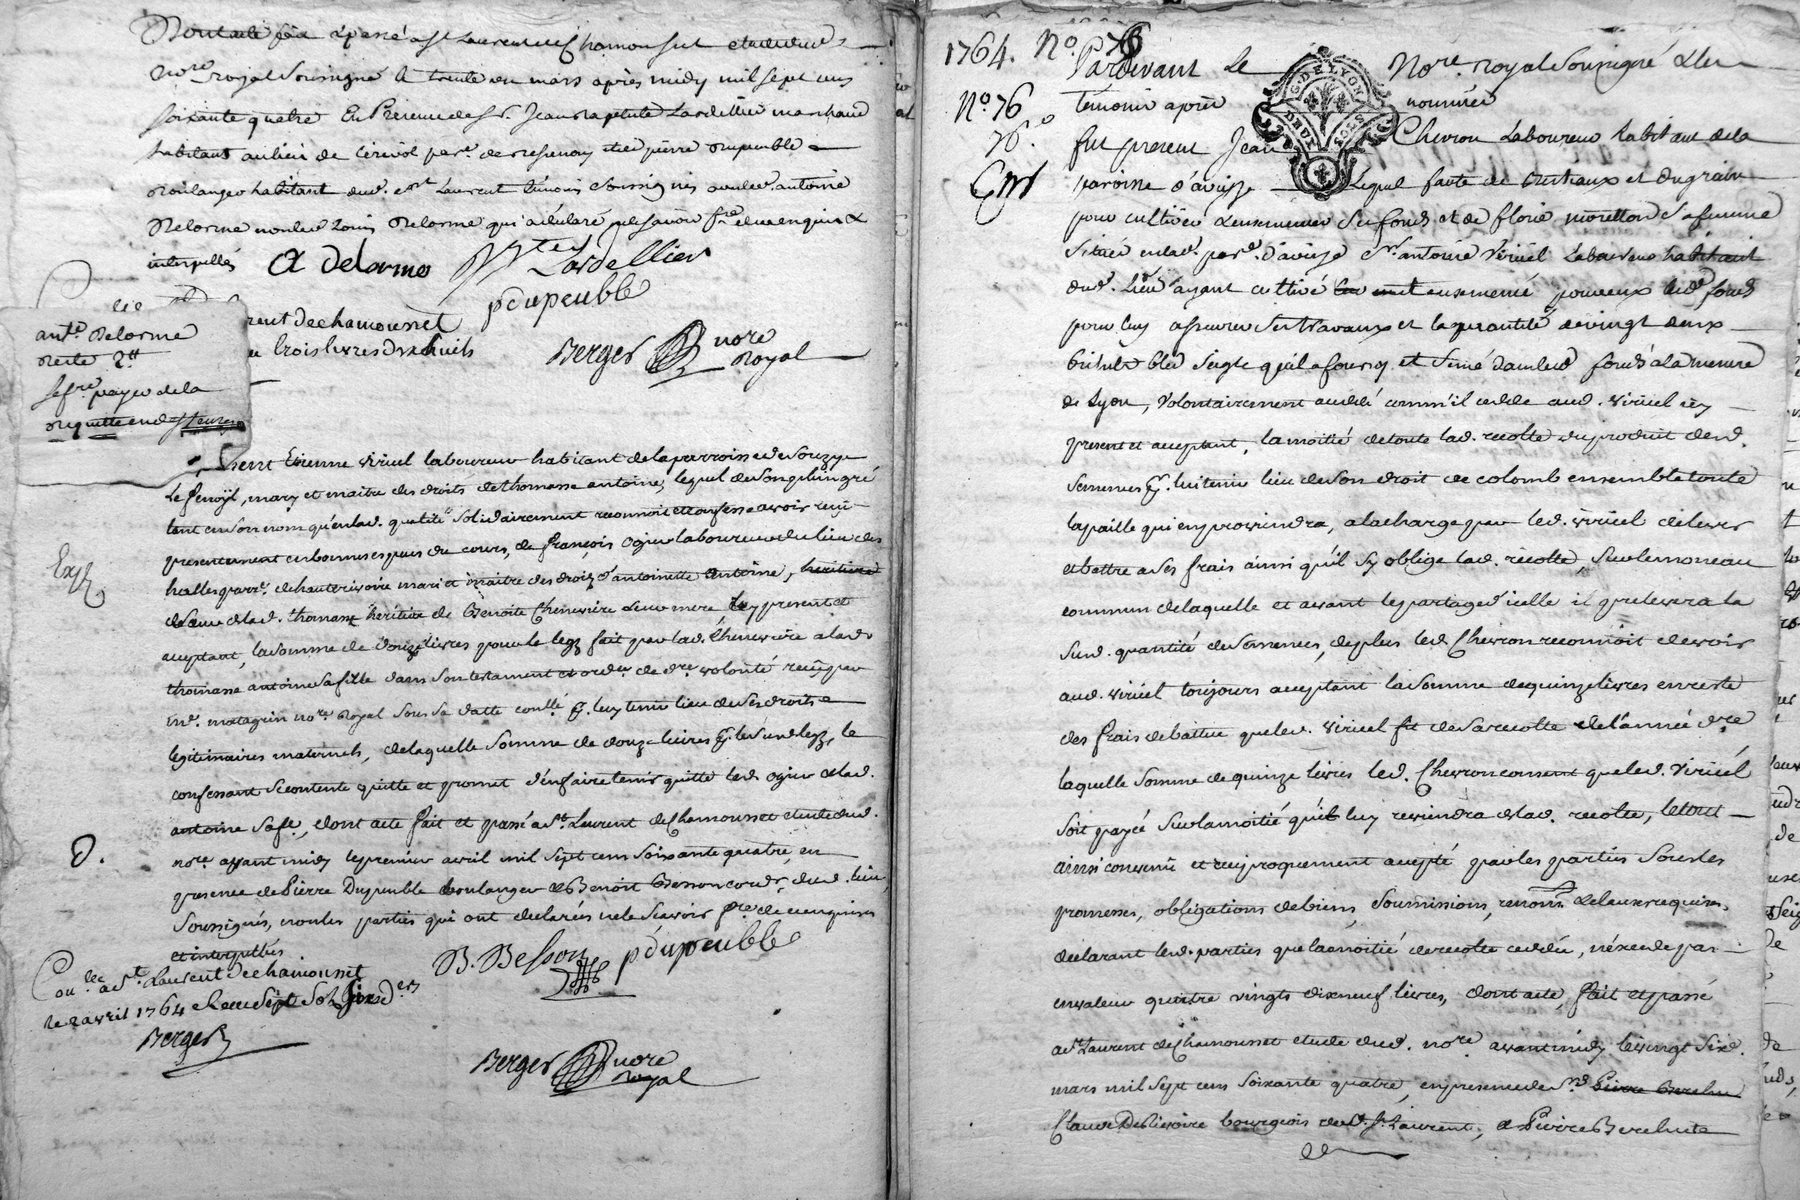 Dont acte fait & passé a St Laurent de Chamousset etude dud.
nore. royal soussigné le trente un mars après midy mil sept cens
soixante quatre En Presence de sr. Jean Baptiste Lardellier marchand
habitant au lieu de parse. de et de pierre Dupeuble
Boulanger habitant aud. St Laurent témoins soussignés avec led. antoine
Delorme non led. Louis Delorme qui a déclaré ne sçavoir fre. de ce enquis &
interpellés
A delorme Lardellier
pdupeuble
rent de chamousset
trois livres dix huit s
Berger nore
Royal
ant.e Delorme
reste 2tt
payer de la
etienne viricel laboureur habitant de la parroisse de Souzy
Le fenoÿl, mary et maitre des droits de thomasse antoine, lequel de son plein gré
tant en son nom qu'en lad. qualité solidairement reconnoit et confesse avoir reçu
presentement en bonnes especes du cours, de françois ogier laboureur du lieu des
halles parr.e de hauterivoire mari et maitre des droits d'antoinette antoine, heritiere
de lad. thomasse heritiere de Benoite Chenevière leur mere icy present et
acceptant, la somme de douze livres pour le legs fait par lad. Chenevière a lad.
thomasse antoine sa fille dans son testament et ordre de dre. volonté reçu par
me. matagrin nore. Royal sous sa datte conllé p. luy tenir lieu de ses droits
legitimaires maternels, de laquelle somme de douze livres p. led. susd. legs, le
confessant se contente quitte et promet d'en faire tenir quitte led. ogier & lad.
antoine sa fe., dont acte fait et passé a St. Laurent de Chamousset etude dud.
nore. avant midy le premier avril mil sept cens soixante quatre, en
presence de Pierre Dupeuble boulanger & Benoit Besson cordr. dud. lieu,
soussignés, non les parties qui ont declarées ne le sçavoir fre. de ce enquises
et interpellées
D.
Conllé a St. Laurent de chamousset
le 2 avril 1764 Reçu sept sols six ders
Berger
B. Besson pdupeuble
Berger nore
royal
1764. No. 76
No. 76
76.
Pardevant Le Nore. royal soussigné & les
témoins après nommés
G. DE LYON
fut present Jean Chevron Laboureur habitant de la
paroisse d'aveize Lequel faute de bestiaux et de grain
pour cultiver & ensemencer ses fonds et de florie moretton sa femme
situés en lad. parse. d'aveize Sr. antoine Viricel Laboureur habitant
dud. Lieu ayant cultivé ensemencé pour eux lesd. fonds
pour luy assurer ses travaux et la quantité de vingt deux
bichets bled seigle qu'il a fourny et semé dans lesd. fonds a la mesure
de Lyon, volontairement a cedé comm'il cedde aud. viricel icy
present et acceptant, la moitié de toute lad. recolte du produit desd.
semences p. lui tenir lieu de son droit de colomb ensemble toute
la paille qui en proviendra, a la charge par led. viricel de lever
et battre a ses frais ainsi qu'il s'y oblige lad. recolte, sur le monceau
commun de laquelle et avant le partage d'icelle il prelevera la
susd. quantité de semences, de plus led. Chevron reconnoit devoir
aud. viricel toujours acceptant la somme de quinze livres en reste
des frais de battue que led. viricel fit de sa recolte de l'année dre.
laquelle somme de quinze livres led. Chevron consent que led. viricel
soit payée sur la moitié qu'il luy reviendra de lad. recolte, le tout
ainsi convenu et reciproquement accepté par les parties sous les
promesses, obligations de biens soumissions, renons & clauses requises,
declarant lesd. parties que la moitié de recolte cedée, n'excede pas
en valeur quatre vingts dix neuf livres, dont acte, fait et passé
a St Laurent de Chamousset etude dud. nore. avant midy le vingt six
mars mil sept cens soixante quatre, en presence de Sr.
Claude Delivoire bourgeois dud. St. Laurent, & Pierre